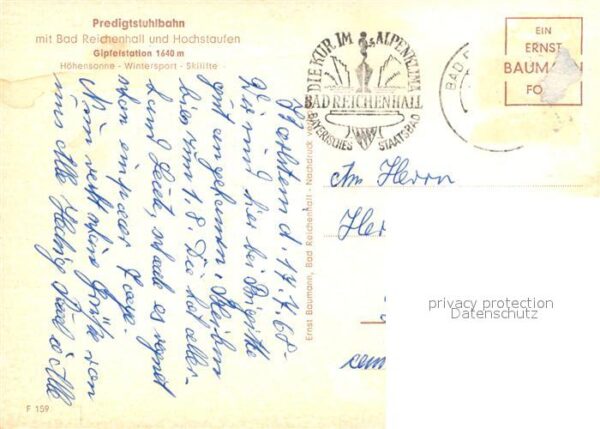 Predigtstuhlbahn
mit Bad Reichenhall und Hochstaufen
Gipfelstation 1640 m
Höhensonne - Wintersport - Skilifte
DIE KUR IM ALPENKLIMA
BAD REICHENHALL
BAYERISCHES STAATSBAD
BAD
EIN
ERNST
BAUMANN
FO
d. 17.7.68.
Wir sind hier bei Brigitte
gut angekommen. bleiben
bis zum 1.8. Die hat aller-
hand Leut, schade es regnet
schon ein paar Tage.
Nun recht schöne Grüße von
uns Alle
Ernst Baumann, Bad Reichenhall - Nachdruck
An Herrn
Her
privacy protection
Datenschutz
F 159